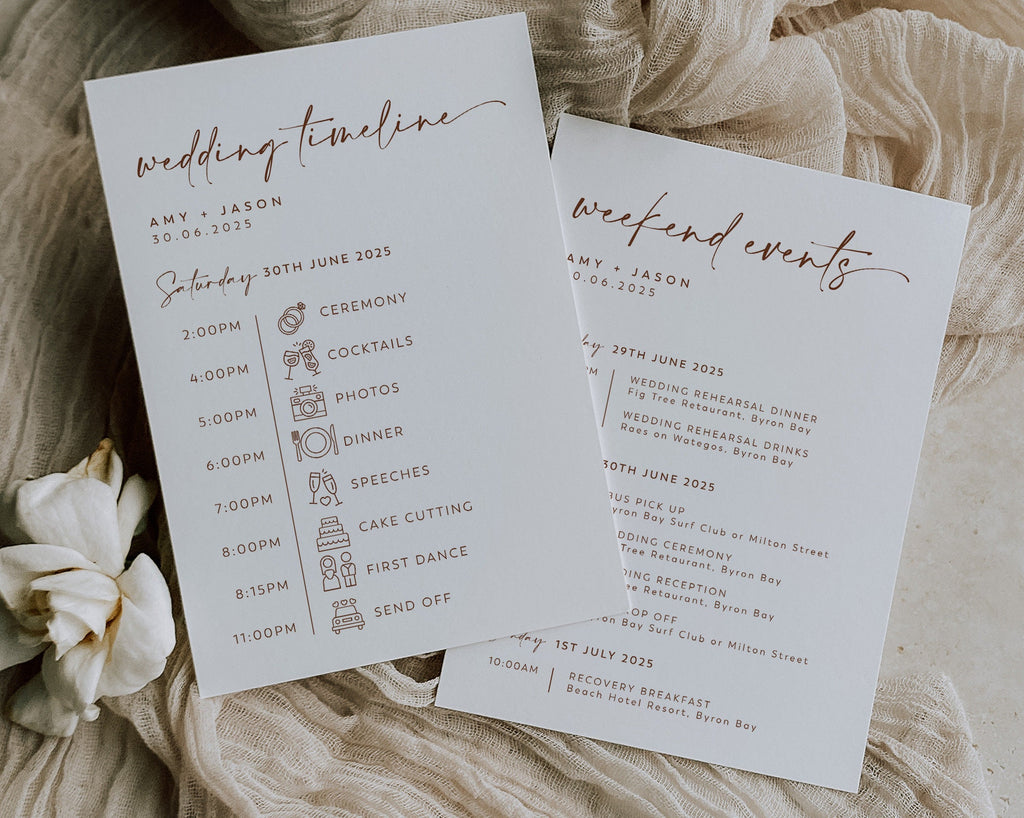 wedding timeline
AMY + JASON
30.06.2025
Saturday 30TH JUNE 2025
2:00PM CEREMONY
4:00PM COCKTAILS
5:00PM PHOTOS
6:00PM DINNER
7:00PM SPEECHES
8:00PM CAKE CUTTING
8:15PM FIRST DANCE
11:00PM SEND OFF
weekend events
AMY + JASON
0.06.2025
29TH JUNE 2025
WEDDING REHEARSAL DINNER
Fig Tree Retaurant, Byron Bay
WEDDING REHEARSAL DRINKS
Raes on Wategos, Byron Bay
30TH JUNE 2025
BUS PICK UP
yron Bay Surf Club or Milton Street
DING CEREMONY
Tree Retaurant, Byron Bay
DING RECEPTION
ee Retaurant, Byron Bay
OP OFF
on Bay Surf Club or Milton Street
1ST JULY 2025
10:00AM RECOVERY BREAKFAST
Beach Hotel Resort, Byron Bay